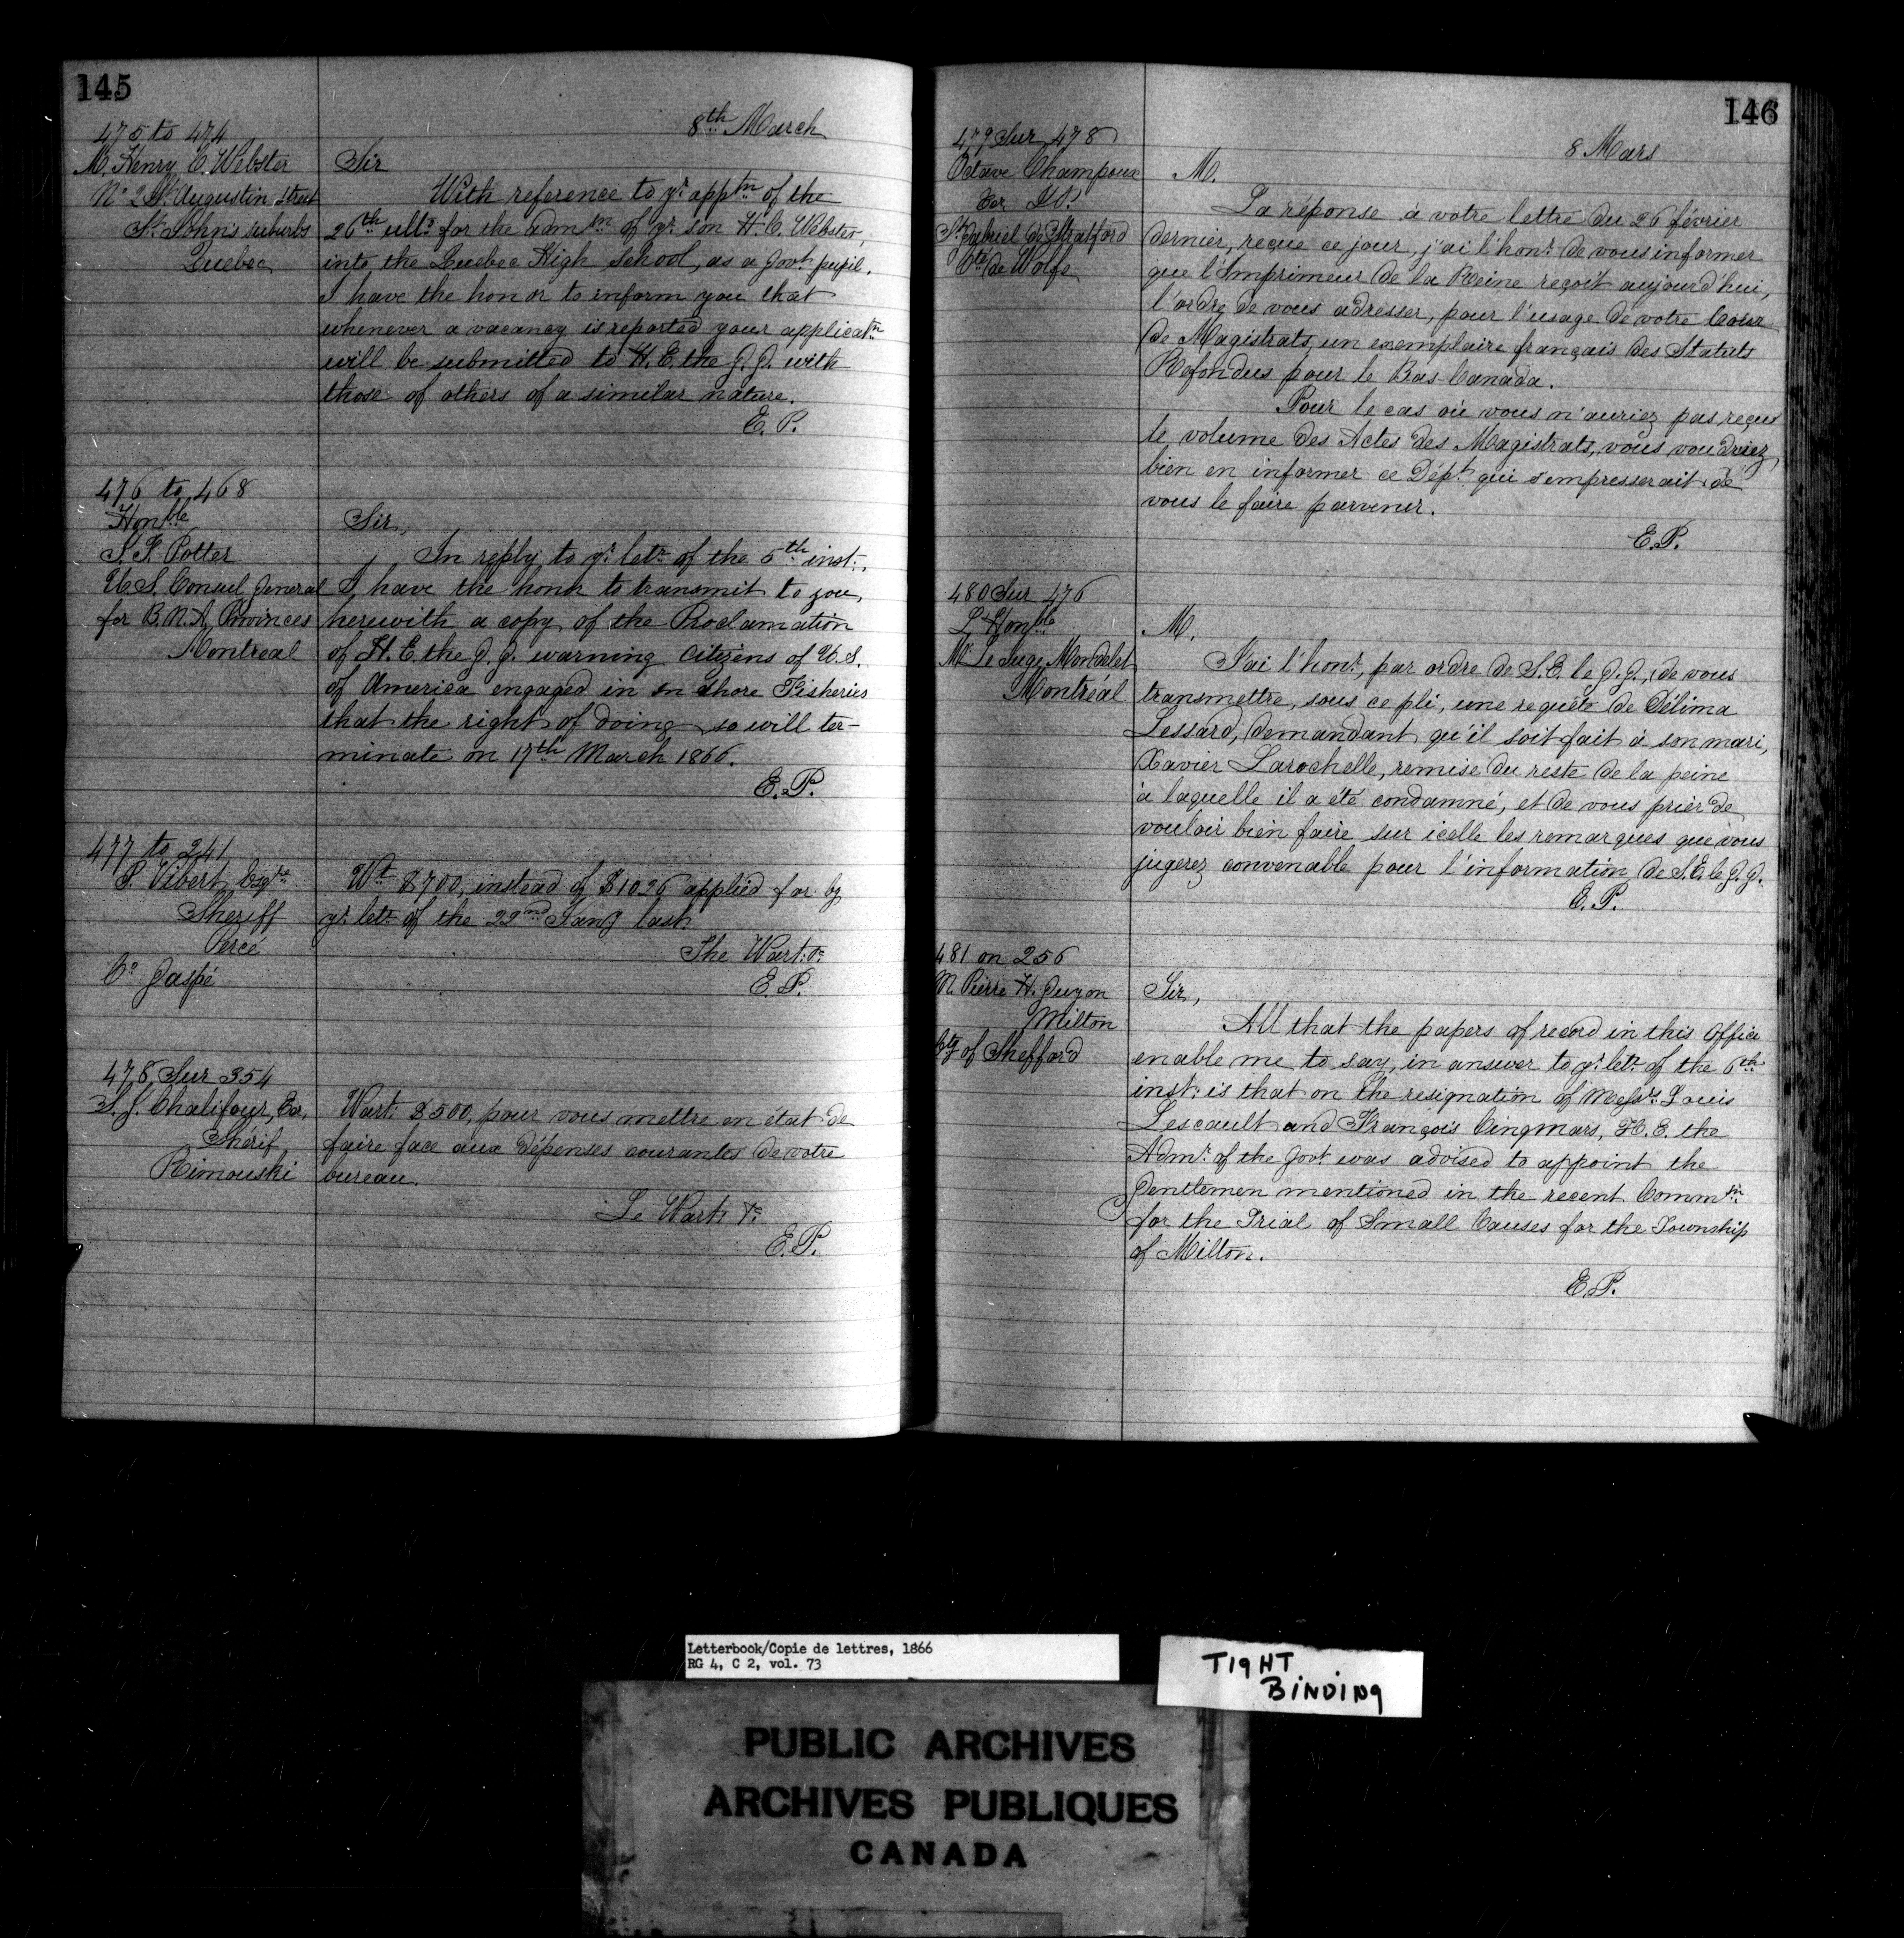 145
8th March
475 to 474
M. Henry C. Webster
No 2 St Augustin Street
St John's suburbs
Quebec
Sir
With reference to yr. apptn of the
26th ulto. for the admsn of yr. son H. C. Webster,
into the Quebec High School, as a Govt. pupil.
I have the honor to inform you that
whenever a vacancy is reported your applicatn
will be submitted to H. E. the G. G. with
those of others of a similar nature.
E. P.
476 to 468
Honble
J. F. Potter
U. S. Consul General
for B. N. A. Provinces
Montreal
Sir,
In reply to yr. letr. of the 5th inst.,
I have the honr to transmit to you,
herewith a copy of the Proclamation
of H. E. the G. G. warning Citizens of U. S.
of America engaged in in shore Fisheries
that the right of doing so will ter-
minate on 17th March 1866.
E. P.
477 to 241
P. Vibert Esqre
Sheriff
Percé
Co Gaspé
Wt $700, instead of $1026 applied for by
yr. letr. of the 22nd Jany last
The Wart. &c
E. P.
478 Sur 354
J. J. Chalifour, Ecr,
Shérif
Rimouski
Wart. $500, pour vous mettre en état de
faire face aux dépenses courantes de votre
bureau.
Le Wart. &c
E. P.
146
8 Mars
479 Sur 478
Octave Champoux
Ecr J.P.
St Gabriel de Stratford
Cté de Wolfe
M.
La réponse à votre lettre du 26 février
dernier, reçue ce jour, j'ai l'honr. de vous informer
que l'Imprimeur de la Reine reçoit aujourd'hui,
l'ordre de vous adresser, pour l'usage de votre Cour
de Magistrats, un exemplaire français des Statuts
Refondus pour le Bas-Canada.
Pour le cas où vous n'auriez pas reçus
le volume des Actes des Magistrats, vous voudriez
bien en informer ce Dépt. qui s'empresserait de
vous le faire parvenir.
E. P.
480 Sur 476
L'Honble
Mr Le Juge Mondelet
Montréal
M.
J'ai l'honr., par ordre de S. E. le G. G., de vous
transmettre, sous ce pli, une requête de Délima
Lessard, demandant qu'il soit fait à son mari,
Xavier Larochelle, remise du reste de la peine
à laquelle il a été condamné, et de vous prier de
vouloir bien faire sur icelle les remarques que vous
jugerez convenable pour l'information de S. E. le G. G.
E. P.
481 on 256
M. Pierre H. Guyon
Milton
Cty of Shefford
Sir,
All that the papers of record in this Office
enable me to say, in answer to yr. letr. of the 6th
inst. is that on the resignation of Messrs. Louis
Lescault and François Cinqmars, H. E. the
Admr. of the Govt. was advised to appoint the
Gentlemen mentioned in the recent Commsn
for the Trial of Small Causes for the Township
of Milton.
E. P.
Letterbook/Copie de lettres, 1866
RG 4, C 2, vol. 73
TIGHT
BINDING
PUBLIC ARCHIVES
ARCHIVES PUBLIQUES
CANADA